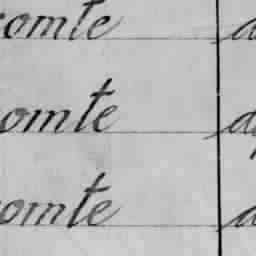 comte
comte
comte